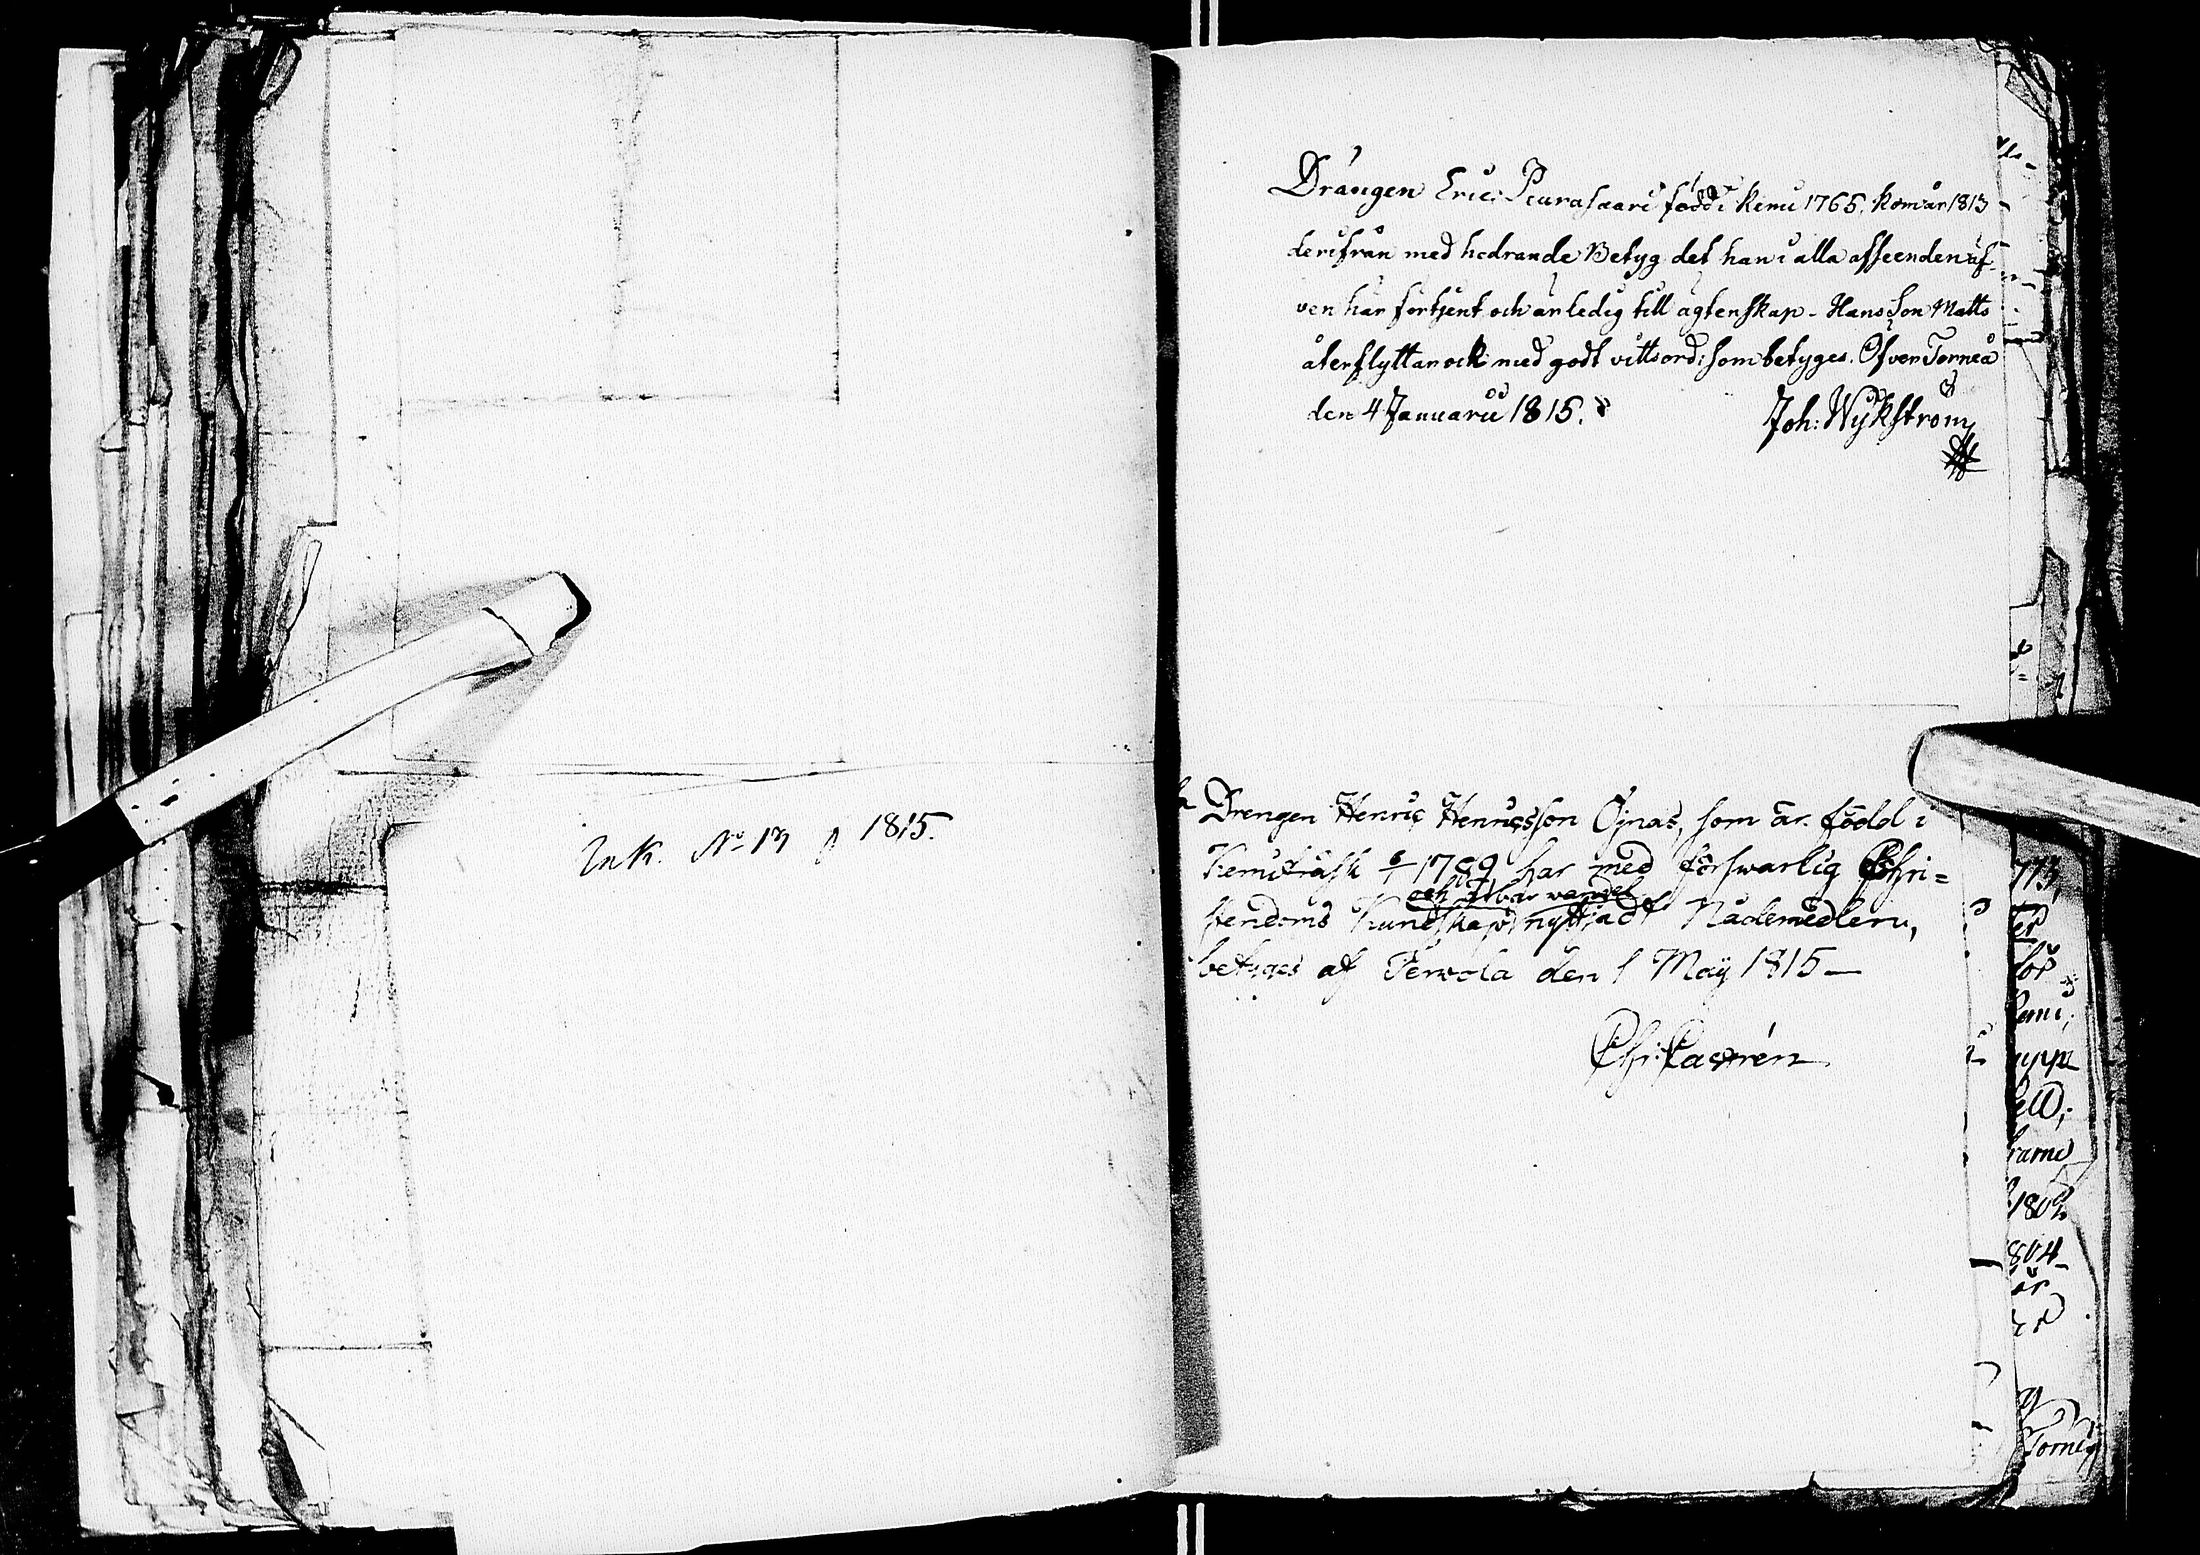 Ink. No 13 p 1815.
Drängen Eric Peurasaari född i Kemi 1765. kom år 1813
derifrån med hedrande Betyg det han i alla afseenden äf-
ven här förtjent och är ledig till ägtenskap - Hans Son Matts
återflyttar ock med godt vittsord; som betyges. Öfver Torneå
den 4 Januarii 1815.
Joh: Wykström
Drengen Henric Henricsson Ojnas, som är född i
Kemiträsk 1789 har med försvarlig Chri=
och ärbar vandel
stendoms Kundskap nyttjadt Nådemedlen,
betyges af Tervola den 1 Maij 1815 —
Chr: Castrén
773,
lör
Kemi;
upp
rame
1802
804
år
Torneå